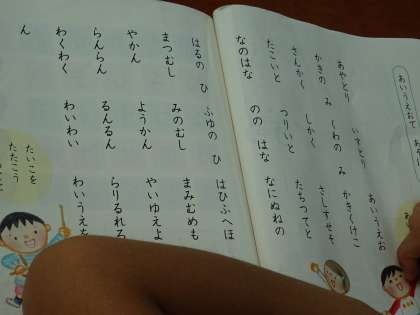 あいうえお
あやとり いすとり あいうえお
かきの み くわの み かきくけこ
さんかく しかく さしすせそ
たこいと つりいと たちつてと
なのはな のの はな なにぬねの
はるの ひ ふゆの ひ はひふへほ
まつむし みのむし まみむめも
やかん ようかん やいゆえよ
らんらん るんるん らりるれろ
わくわく わいわい わいうえを
ん
たいこを
たたこう